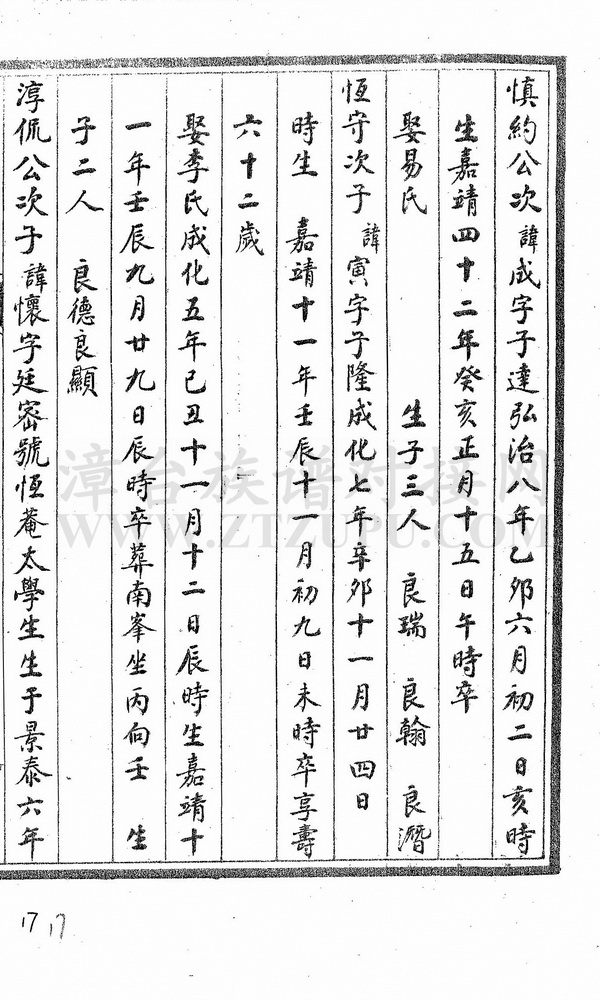 慎約公次諱成字子達弘治八年乙夘六月初二日亥時
生嘉靖四十二年癸亥正月十五日午時卒
娶易氏 生子三人 良瑞 良翰 良潛
恆守次子諱寅字子隆成化七年辛夘十一月廿四日
時生 嘉靖十一年壬辰十一月初九日未時卒享壽
六十二歲
娶李氏成化五年己丑十一月十二日辰時生嘉靖十
一年壬辰九月廿九日辰時卒葬南峯坐丙向壬 生
子二人 良德良顯
淳侃公次子諱懷字廷密號恆菴太學生生于景泰六年
漳台族谱对接网
WWW.ZTZUPU.COM
17 17